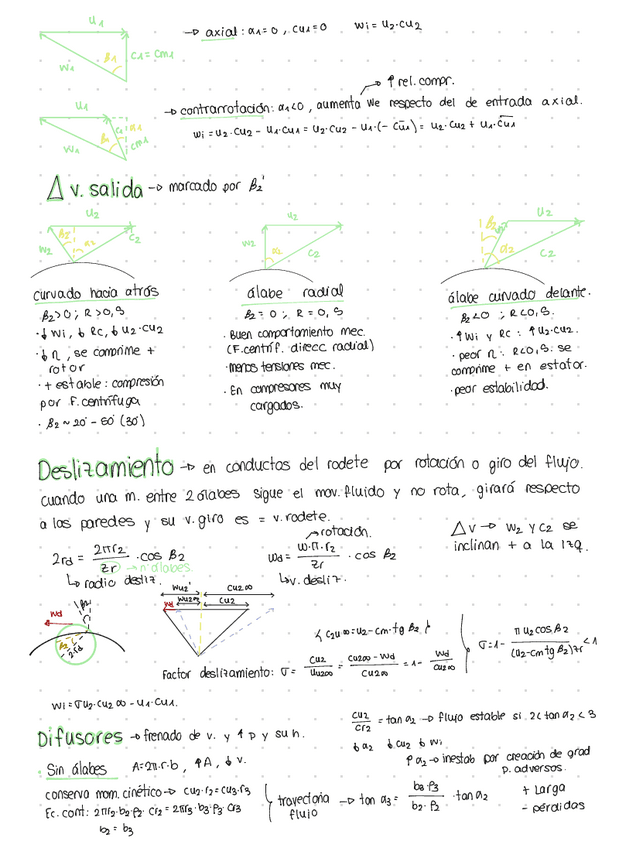 u1
→ axial : α1=0 , cu1=0 wi = u2·cu2
β1
c1=cm1
w1
↑ rel. compr.
u1
→ contrarrotación: α1<0 , aumenta we respecto del de entrada axial.
c1 α1
β1
cm1
w1
wi = u2·cu2 - u1·cu1 = u2·cu2 - u1·(-cu1) = u2·cu2 + u1·cu1
Δ v. salida → marcado por β2'
u2
β2'
w2
α2
c2
u2
w2
α2
c2
β2
u2
α2
c2
curvado hacia atrás
β2>0 ; R>0,5
·↓ wi, ↓ RC, ↓ u2·cu2
·↓ η , se comprime +
rotor
· + estable : compresión
por F. centrífuga
· β2 ~ 20° - 50° (30°)
álabe radial
β2 = 0 ; R = 0,5
· Buen comportamiento mec.
(F.centríf. direcc radial)
· menos tensiones mec.
· En compresores muy
cargados.
álabe curvado delante.
β2<0 ; R<0,5.
· ↑ wi y RC : ↑ u2·cu2.
· peor η : R<0,5: se
comprime + en estator.
· peor estabilidad.
Deslizamiento → en conductos del rodete por rotación o giro del flujo.
cuando una m. entre 2 álabes sigue el mov. fluido y no rota, girará respecto
a las paredes y su v. giro es = v. rodete.
→ rotación.
2rd = 2πr2 / zr · cos β2
→ nº álabes.
↳ radio desliz.
wd = ω·π·r2 / zr · cos β2
↳ v. desliz.
Δv → w2 y c2 se
inclinan + a la izq.
β2
wd
β2
2rd
wu2'
cu2∞
wd
wu2∞
cu2
{ c2u∞ = u2 - cm·tg β2 }
Factor deslizamiento: σ = cu2 / uu2∞ = cu2∞ - wd / cu2∞ = 1 - wd / cu2∞
σ = 1 - π u2 cos β2 / (u2 - cm tg β2) zr < 1
wi = σ u2·cu2∞ - u1·cu1.
Difusores → frenado de v. y ↑ p y su h.
cu2 / cr2 = tan α2 → flujo estable si 2< tan α2 < 3
↓ α2 ↓ cu2 ↓ wi
↑ α2 → inestab por creación de grad
p. adversos.
· Sin álabes A=2π·r·b , ↑A, ↓ v.
conserva mom. cinético → cu2·r2 = cu3·r3
Ec. cont: 2πr2·b2·ρ2·cr2 = 2πr3·b3·ρ3·cr3
b2 = b3
trayectoria
flujo
→ tan α3 = b3·ρ3 / b2·ρ2 · tan α2
+ larga
- pérdidas